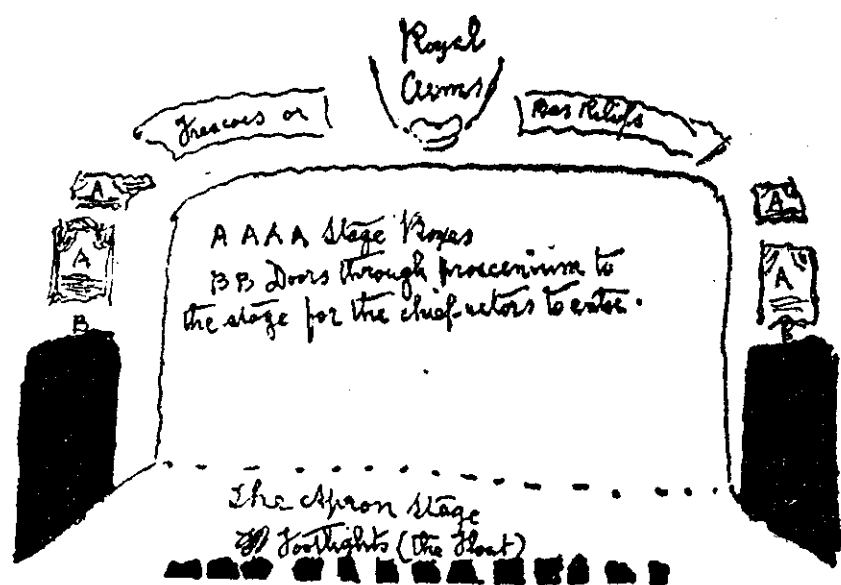 Royal
Arms
Frescoes or
Bas Reliefs
A
A
A
A
A A A A Stage Boxes
B B Doors through proscenium to
the stage for the chief actors to enter.
B
B
The Apron Stage
Footlights (the Float)